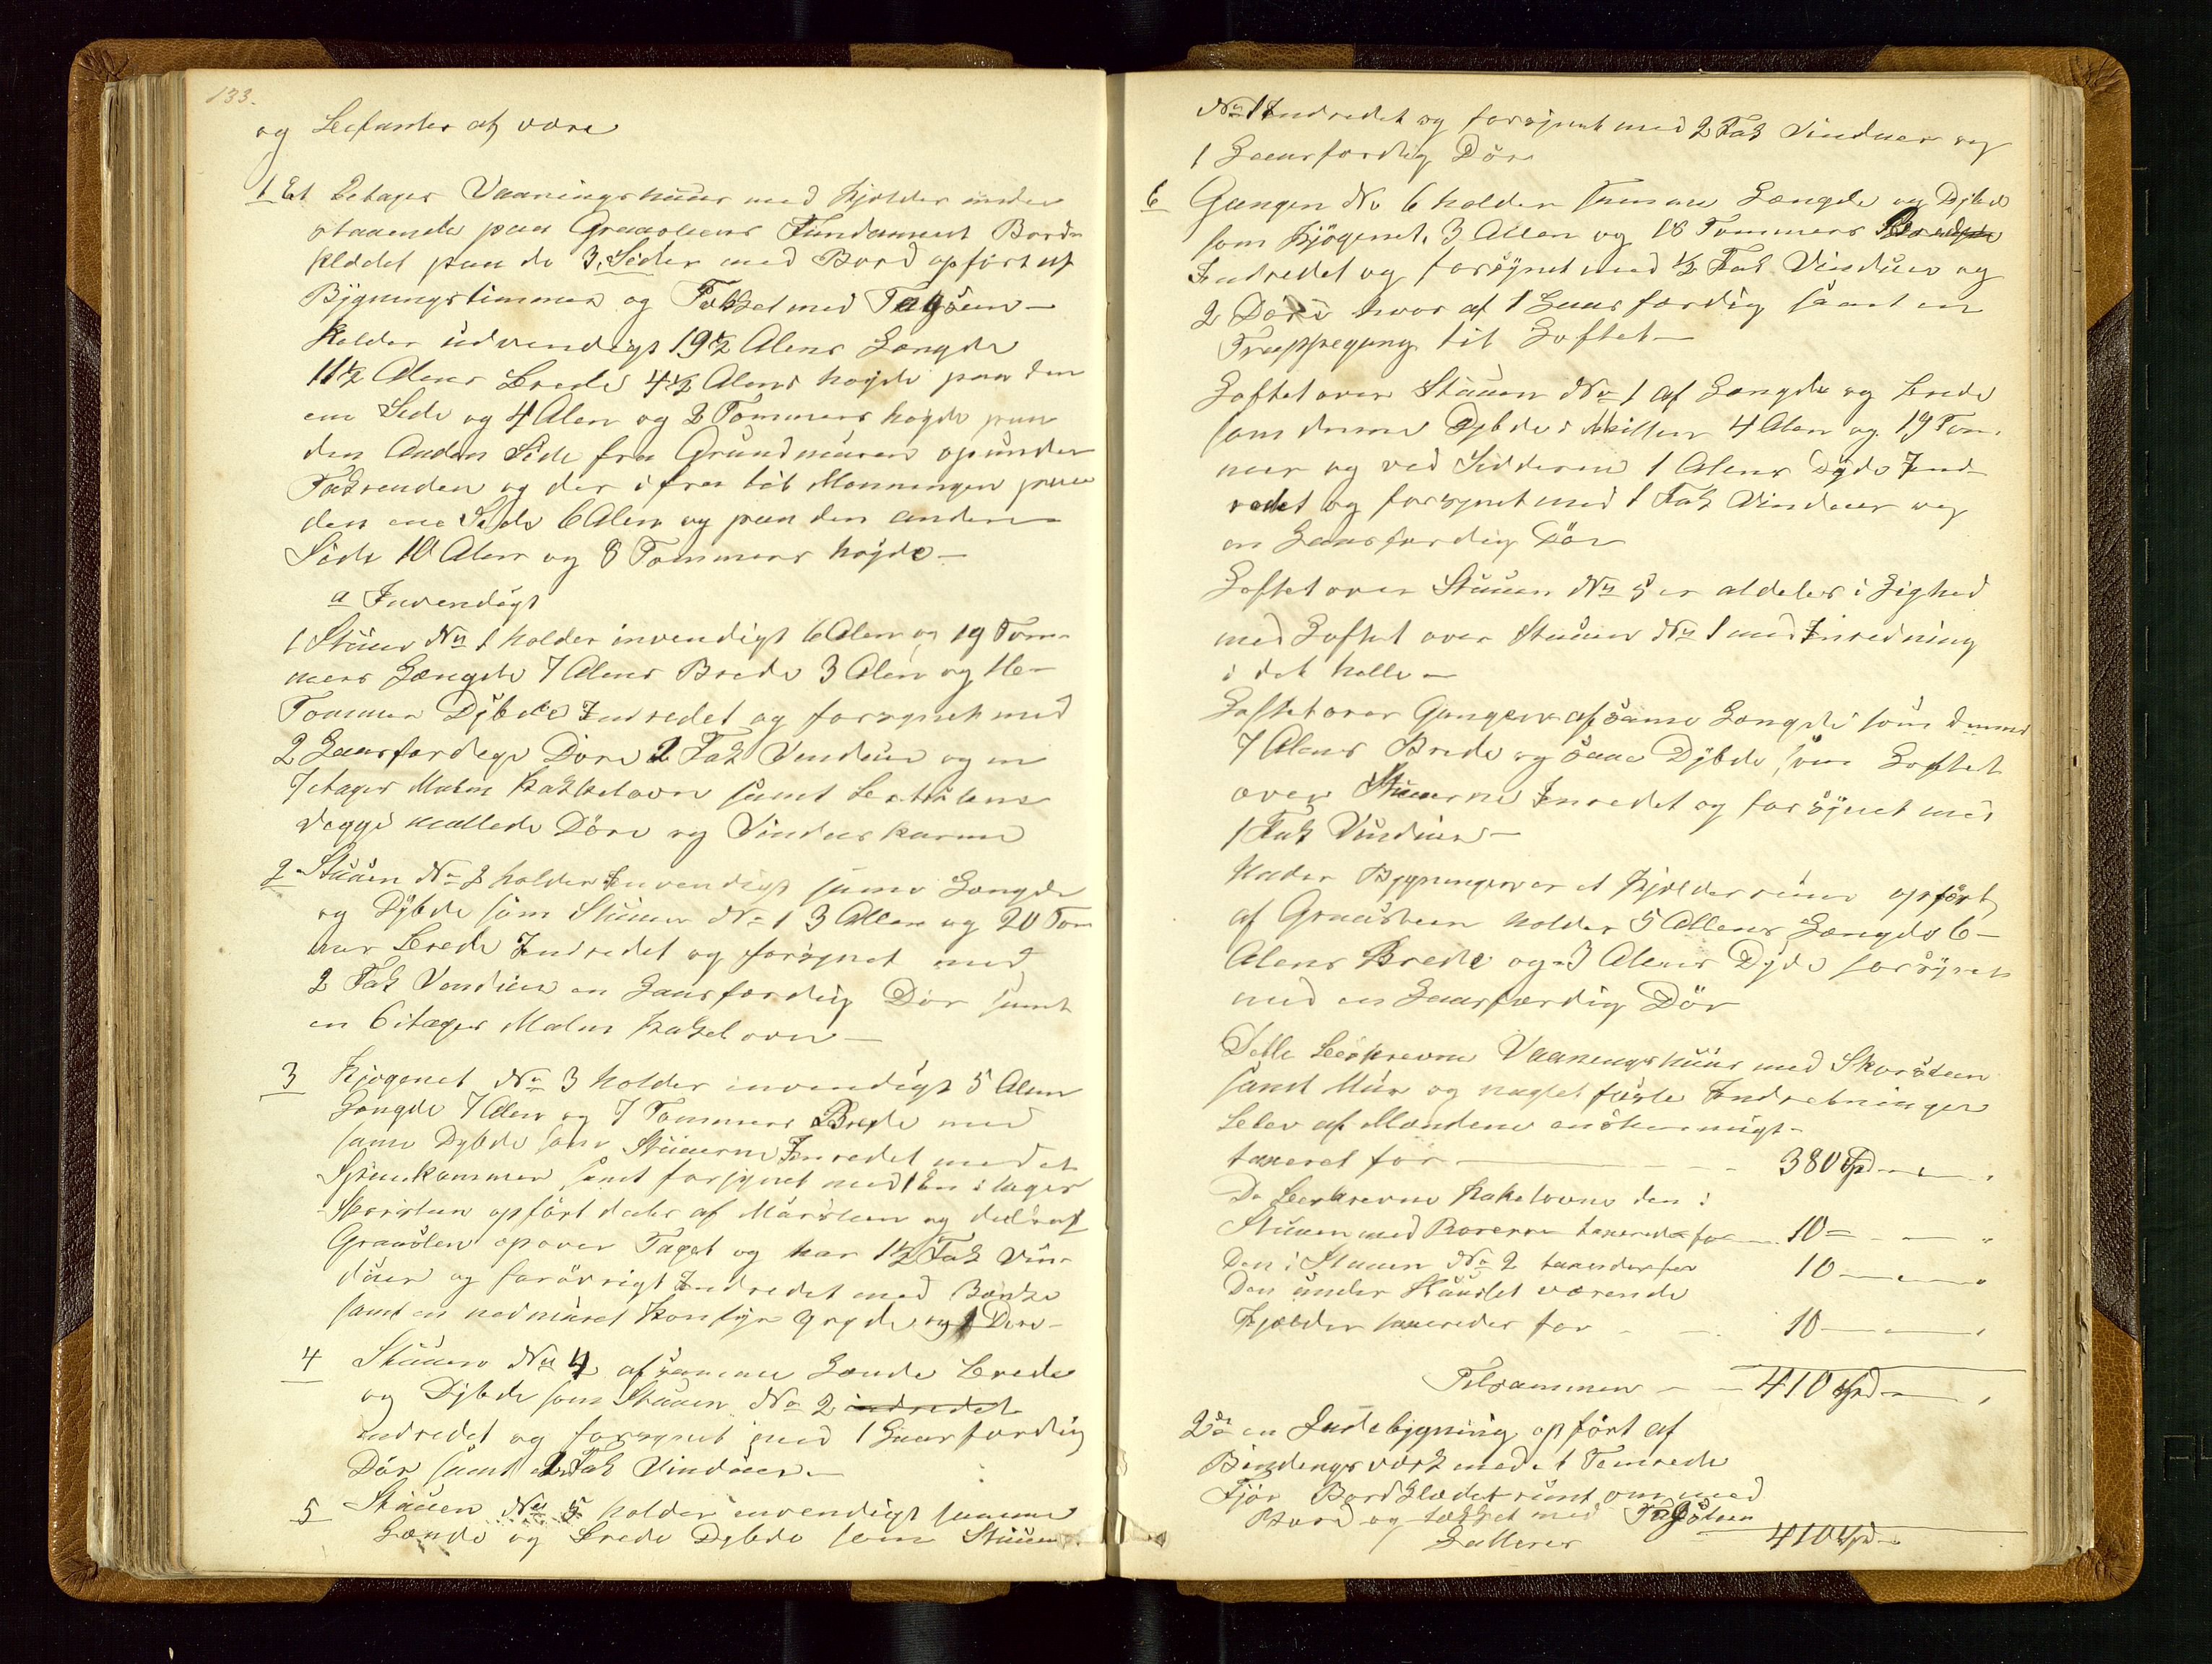 133.
og Befantes at være
1 Et 2etages Vaaningshuus med Kjelder under
staaende paa Graasteens Fundament Bord-
klædet paa de 3, Sider med Bord opført af
Bygningstimmer og Tækket med Tagsten —
holder udvendigt 19½ Alens Længde
11½ Alens Brede 4½ Alens høyde paa den
ene Side og 4 Alen og 2 Tommers høyde paa
den Anden Side fra Grundmuren op under
Tagrenden og der ifra til Mønningen paa
den ene Side 6 Alen og paa den anden
Side 10 Alen og 8 Tommers høyde —
a Invendigt
1 Stuen No 1 holder invendigt 6 Alen og 19 Tom-
mers Længde 7 Alens Brede 3 Alen og 16
Tommer Dybde Indredet og forsynet med
2 Laasfærdige Døre 2 Fak Vinduer og en
7etages Malm Kakkelovn samt
Vegge mallede Døre og Vindueskarme
2 Stuen No 2 holder Invendigt samme Længde
og Dybde som Stuen No 1 3 Allen og 20 Tom
mer Brede Indredet og forsynet med
2 Fak Vinduer en Laasfærdig Dør samt
en 6 etages Malm Kakelovn —
3 Kjøgenet No 3 holder invendigt 5 Alen
Længde 7 Alen og 7 Tommers Brede med
samme Dybde som Stuerne Inredet med et
Spisekammer samt forsynet med 1 En etages
Skorsten opført deels af Mursteen og deels af
Graasten op over Taget og har 1½ Fak Vin-
duer og forøvrigt Indredet med Bænke
samt en nedmuret gryde og 1 Døre —
4 Stuen No 4 af samme Lænde Brede
og Dybde som Stuen No 2 indredet
indredet og forsynet med 1 Laasfærdig
Dør samt 2 Fak Vinduer —
5 Stuen No 5 holder invendigt samme
Lænde og Brede Dybde som Stuen
No 1 Indredet og forsynet med 2 Fak Vinduer og
1 Laasfærdig Dør
6 Gangen No 6 holder samme Længde og Dybde
som Kjøgenet, 3 Allen og 18 Tommers Brede
Indredet og forsynet med ½ Fak Vinduer og
2 Døre hvor af 1 Laasfærdig samt en
Trappegang til Loftet —
Loftet over Stuen No 1 af Længde og Brede
som denne Dybde i Mitten 4 Alen og 19 Tom-
mer og ved Sidderne 1 Alens Dyde Ind-
redet og forsynet med 1 Fak Vinduer og
en Laasfærdig Dør
Loftet over Stuen No 5 er aldeles i Lighed
med Loftet over Stuen No 1 med Inredning
i det helle —
Loftet over Gangen af samme Længde som denne
7 Alens Brede og samme Dybde som Loftet
over Stuerne Inredet og forsynet med
1 Fak Vinduer —
Under Bygningen er et Kjelderrum opført
af Graasteen holder 5 Allens Længde 6 —
Alens Brede og 3 Alens Dyde forsynet
med en Laasfærdig Dør
Dette Beskrevne Vaaningshuus med Skorsteen
samt Muur og naglet faste Indretninger
blev af Mændene enstemmigt
taxeret for — 380 Spd — "
De Beskrevne Kakelovne den i
Stuen med taxeredes for — 10 — — "
Den i Stuen No 2 taxeredes for 10 — — "
Den under Huuset værende
Kjelder taxeredes for — — 10 — — "
Tilsammen — — 410 Spd — "
2de en Ladebygning opført af
Bindingsværk med et Temrede
Fjøs Bordklædet runt om med
Bord og tækket med Tagsteen
Latterer 410 Spd —